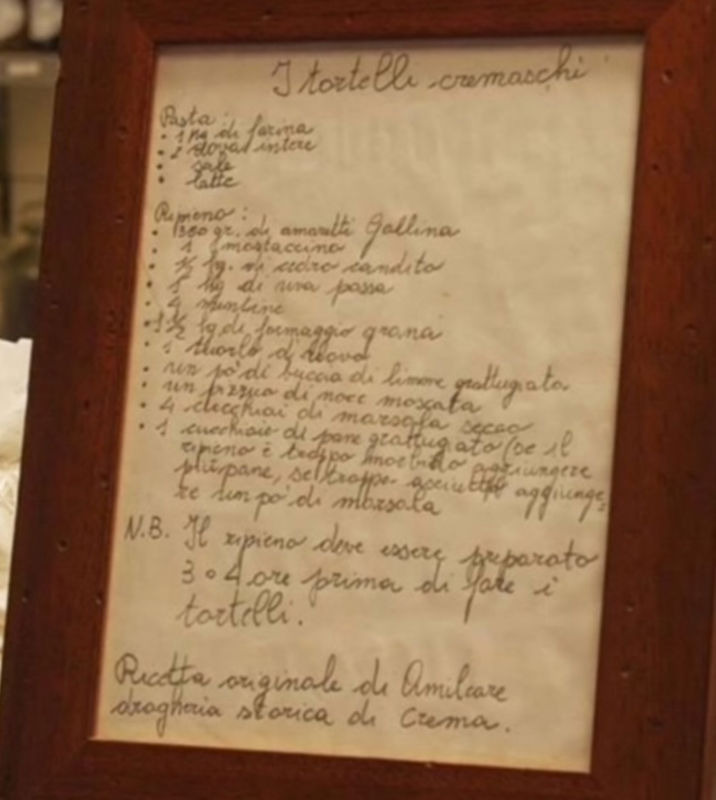 I tortelli cremaschi
Pasta:
• 1 kg di farina
• 2 uova intere
• sale
• latte
Ripieno:
• 300 gr. di amaretti Gallina
• 1 mostaccino
• ½ kg. di cedro candito
• 1 kg di uva passa
• 4 mentine
• 1 ½ kg di formaggio grana
• 1 tuorlo d'uovo
• un po' di buccia di limone grattugiata
• un pizzico di noce moscata
• 4 cucchiai di marsala secco
• 1 cucchiaio di pane grattugiato (se il
ripieno è troppo morbido aggiungere
più pane, se troppo asciutto aggiunge
re un po' di marsala
N.B. Il ripieno deve essere preparato
3 o 4 ore prima di fare i
tortelli.
Ricetta originale di Amilcare
drogheria storica di Crema.